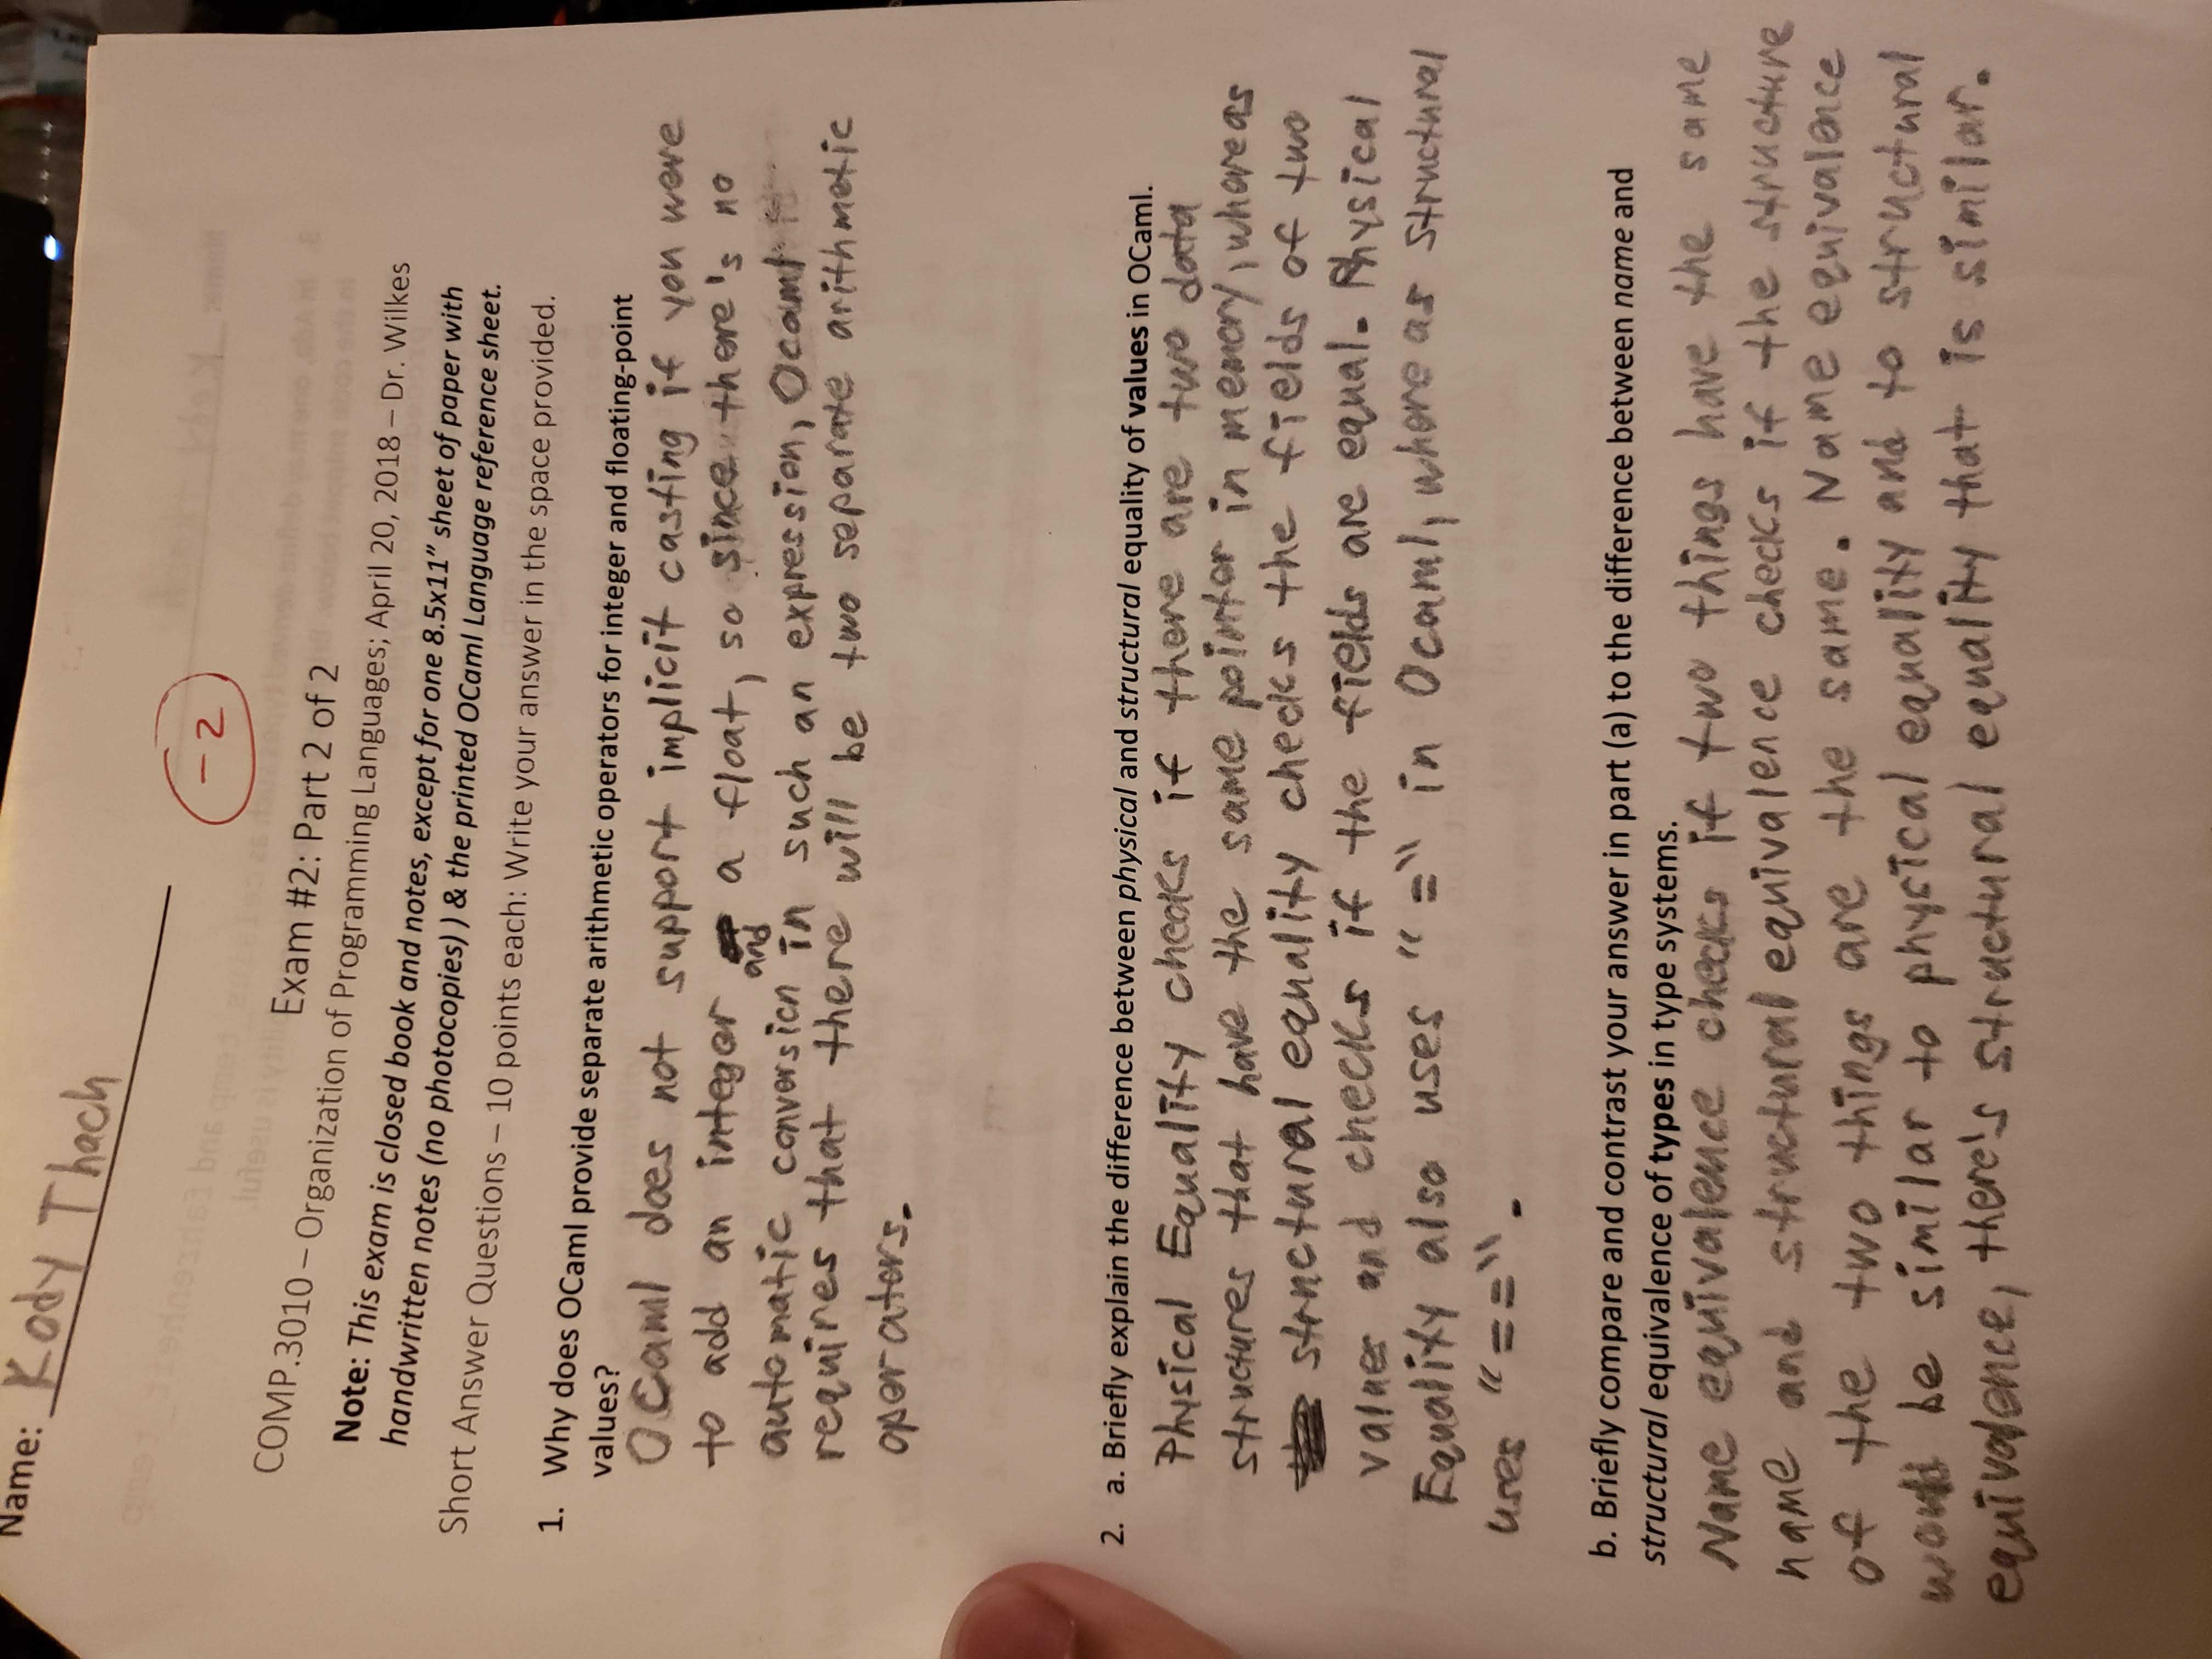 Name: Kody Thach
-2
Exam #2: Part 2 of 2
COMP.3010 – Organization of Programming Languages; April 20, 2018 – Dr. Wilkes
Note: This exam is closed book and notes, except for one 8.5x11” sheet of paper with
handwritten notes (no photocopies) ) & the printed OCaml Language reference sheet.
Short Answer Questions – 10 points each: Write your answer in the space provided.
1. Why does OCaml provide separate arithmetic operators for integer and floating-point
values?
OCaml does not support implicit casting if you were
to add an integer and a float, so since there's no
automatic conversion in such an expression, Ocaml
requires that there will be two separate arithmetic
operators.
2. a. Briefly explain the difference between physical and structural equality of values in OCaml.
Physical Equality checks if there are two data
structures that have the same pointer in memory, whereas
structural equality checks the fields of two
values and checks if the fields are equal. Physical
Equality also uses "=" in Ocaml, whereas structural
uses "==".
b. Briefly compare and contrast your answer in part (a) to the difference between name and
structural equivalence of types in type systems.
Name equivalence checks if two things have the same
name and structural equivalence checks if the structure
of the two things are the same. Name equivalence
would be similar to physical equality and to structural
equivalence, there's structural equality that is similar.